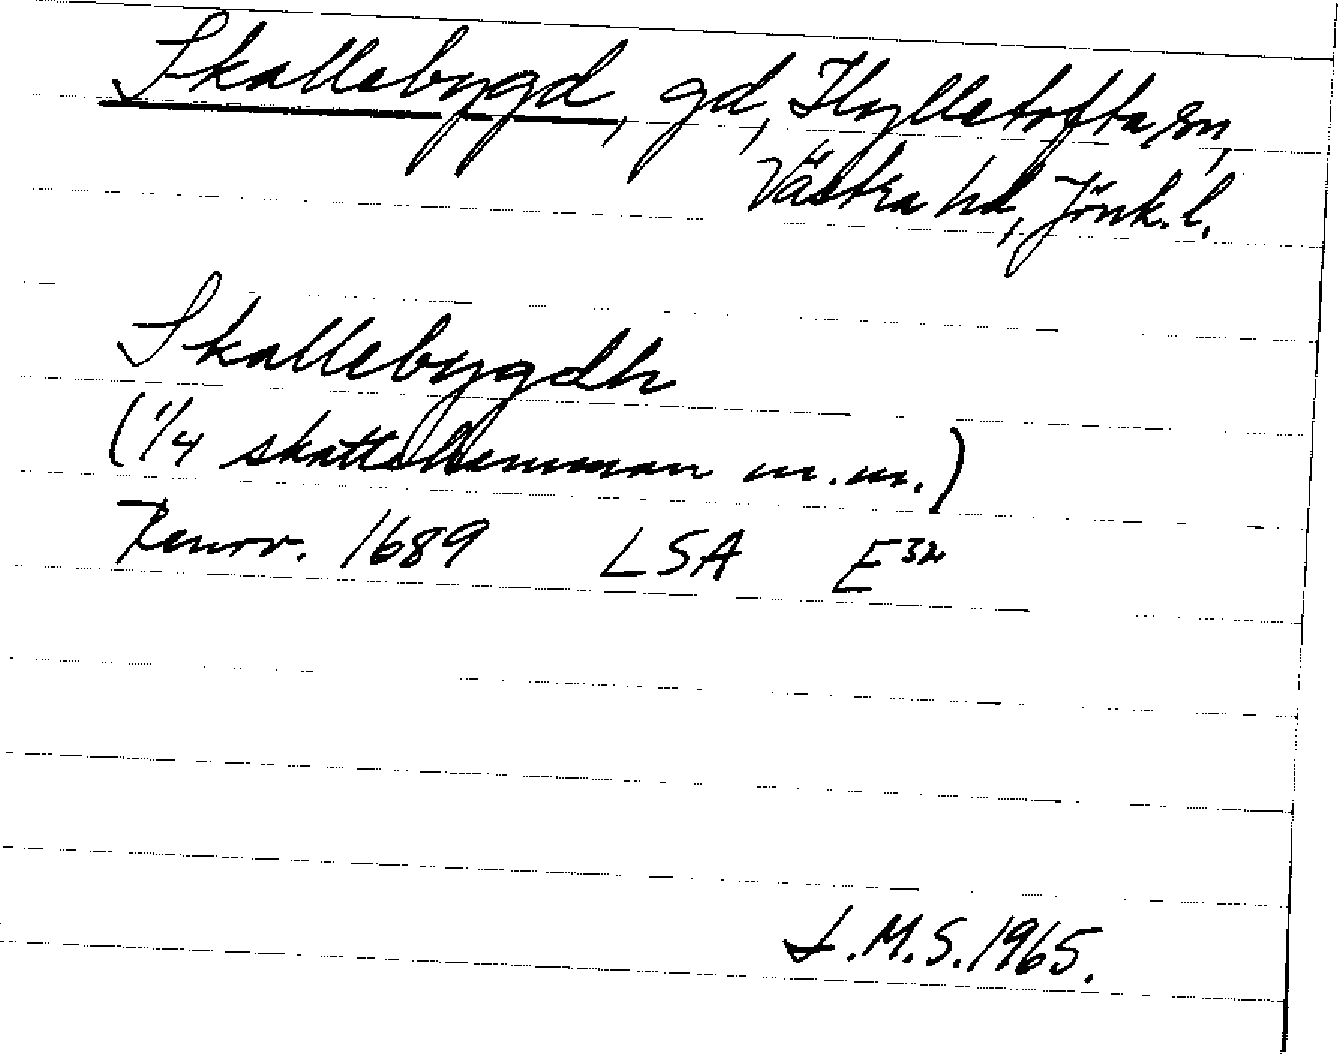 Skallebygd, gd, Hylletofta sn,
Västra hd, Jönk. l.
Skallebygdh
(1/4 skattehemman m.m.)
Renov. 1689 LSA E32
I.M.S. 1965.